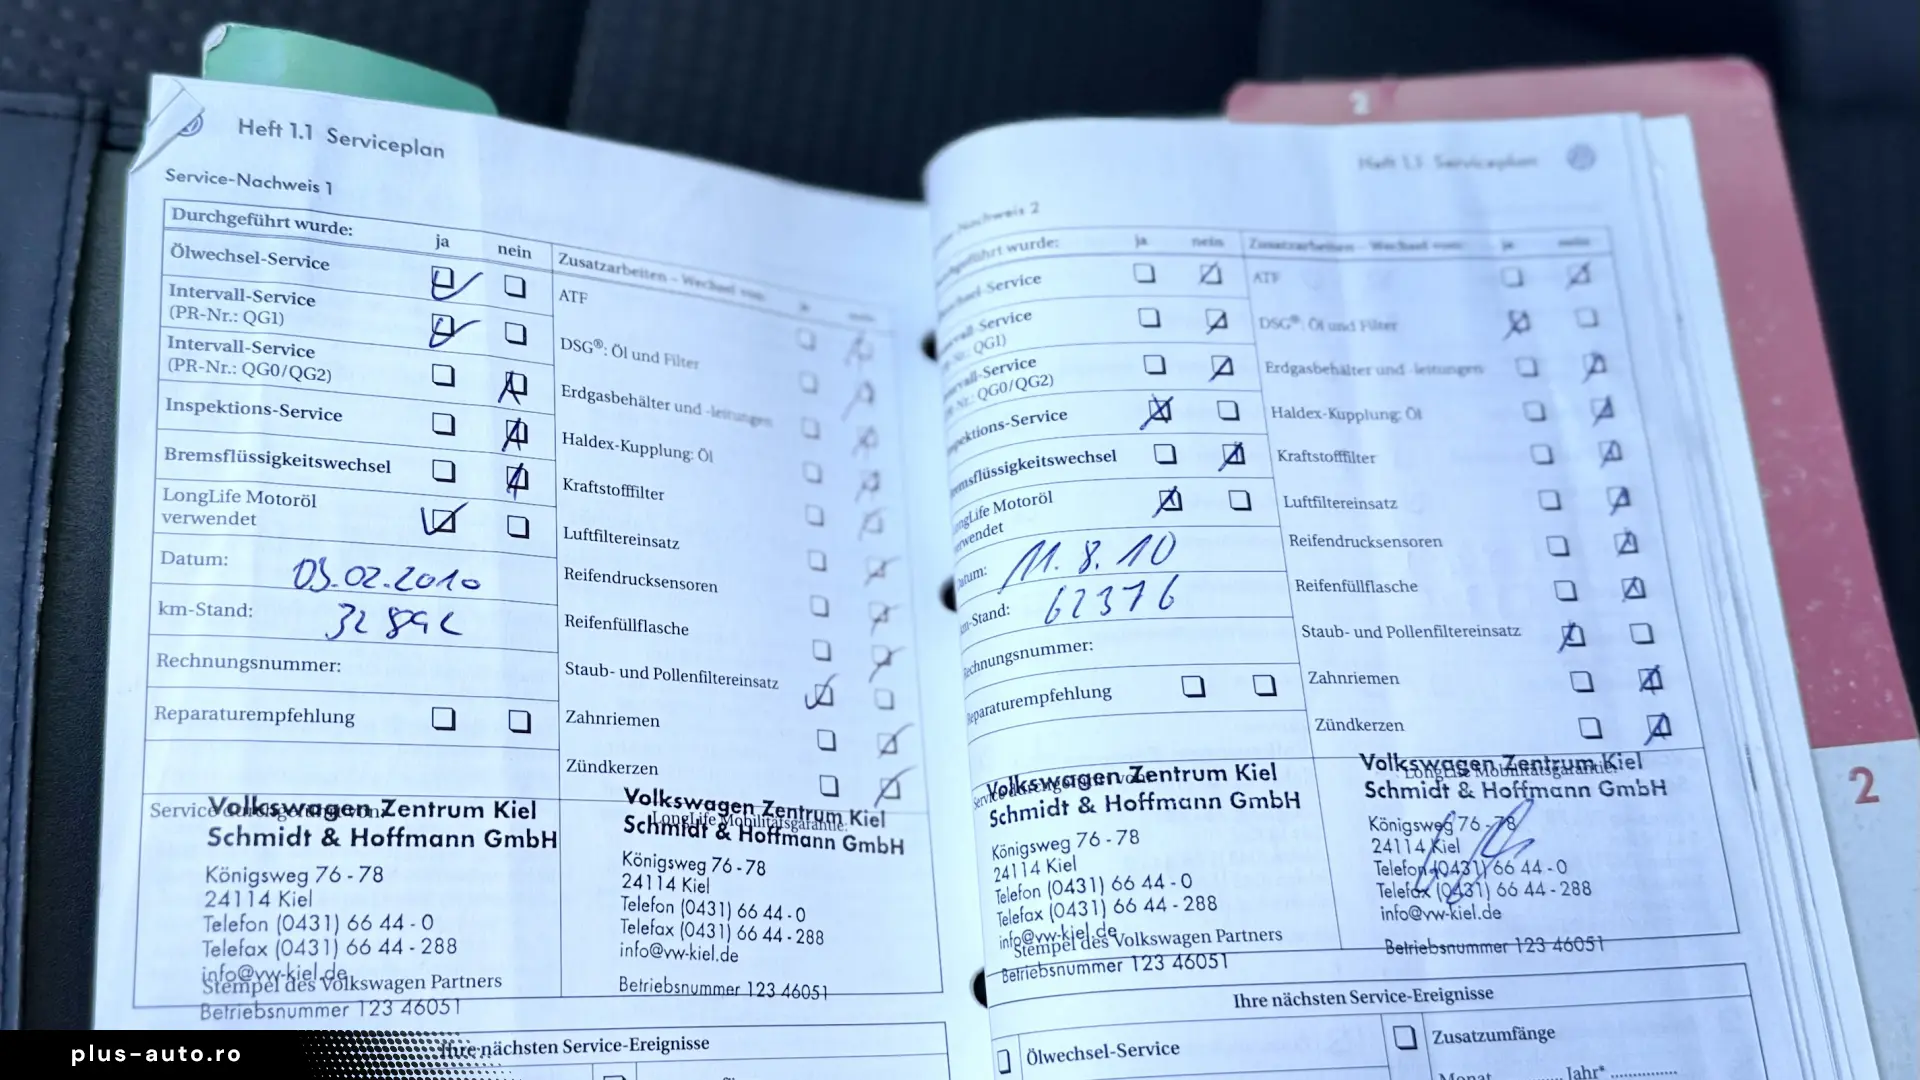 Heft 1.1 Serviceplan
Service-Nachweis 1
Durchgeführt wurde:
ja nein
Ölwechsel-Service
Intervall-Service
(PR-Nr.: QG1)
Intervall-Service
(PR-Nr.: QG0/QG2)
Inspektions-Service
Bremsflüssigkeitswechsel
LongLife Motoröl
verwendet
Datum: 03.02.2010
km-Stand:
Rechnungsnummer:
Reparaturempfehlung
Zusatzarbeiten - Wechsel von:
ATF
DSG®: Öl und Filter
Erdgasbehälter und -leitungen
Haldex-Kupplung: Öl
Kraftstofffilter
Luftfiltereinsatz
Reifendrucksensoren
Reifenfüllflasche
Staub- und Pollenfiltereinsatz
Zahnriemen
Zündkerzen
Service durchgeführt von:
Volkswagen Zentrum Kiel
Schmidt & Hoffmann GmbH
Königsweg 76 - 78
24114 Kiel
Telefon (0431) 66 44 - 0
Telefax (0431) 66 44 - 288
info@vw-kiel.de
Stempel des Volkswagen Partners
Betriebsnummer 123 46051
Volkswagen Zentrum Kiel
LongLife Mobilitätsgarantie:
Schmidt & Hoffmann GmbH
Königsweg 76 - 78
24114 Kiel
Telefon (0431) 66 44 - 0
Telefax (0431) 66 44 - 288
info@vw-kiel.de
Betriebsnummer 123 46051
Ihre nächsten Service-Ereignisse
2
Heft 1.1 Serviceplan
Nachweis 2
wurde:
ja nein
Service
Service
QG1)
Service
QG0/QG2)
Service
LongLife Motoröl
Datum: 11.8.10
km-Stand: 62376
Rechnungsnummer:
Reparaturempfehlung
Zusatzarbeiten - Wechsel von:
ja nein
ATF
DSG®: Öl und Filter
Erdgasbehälter und -leitungen
Haldex-Kupplung: Öl
Kraftstofffilter
Luftfiltereinsatz
Reifendrucksensoren
Reifenfüllflasche
Staub- und Pollenfiltereinsatz
Zahnriemen
Zündkerzen
Volkswagen Zentrum Kiel
Schmidt & Hoffmann GmbH
Königsweg 76 - 78
24114 Kiel
Telefon (0431) 66 44 - 0
Telefax (0431) 66 44 - 288
info@vw-kiel.de
Stempel des Volkswagen Partners
Betriebsnummer 123 46051
Volkswagen Zentrum Kiel
LongLife Mobilitätsgarantie:
Schmidt & Hoffmann GmbH
Königsweg 76 - 78
24114 Kiel
Telefon (0431) 66 44 - 0
Telefax (0431) 66 44 - 288
info@vw-kiel.de
Betriebsnummer 123 46051
Ihre nächsten Service-Ereignisse
Ölwechsel-Service
Zusatzumfänge
Monat Jahr*
2
plus-auto.ro